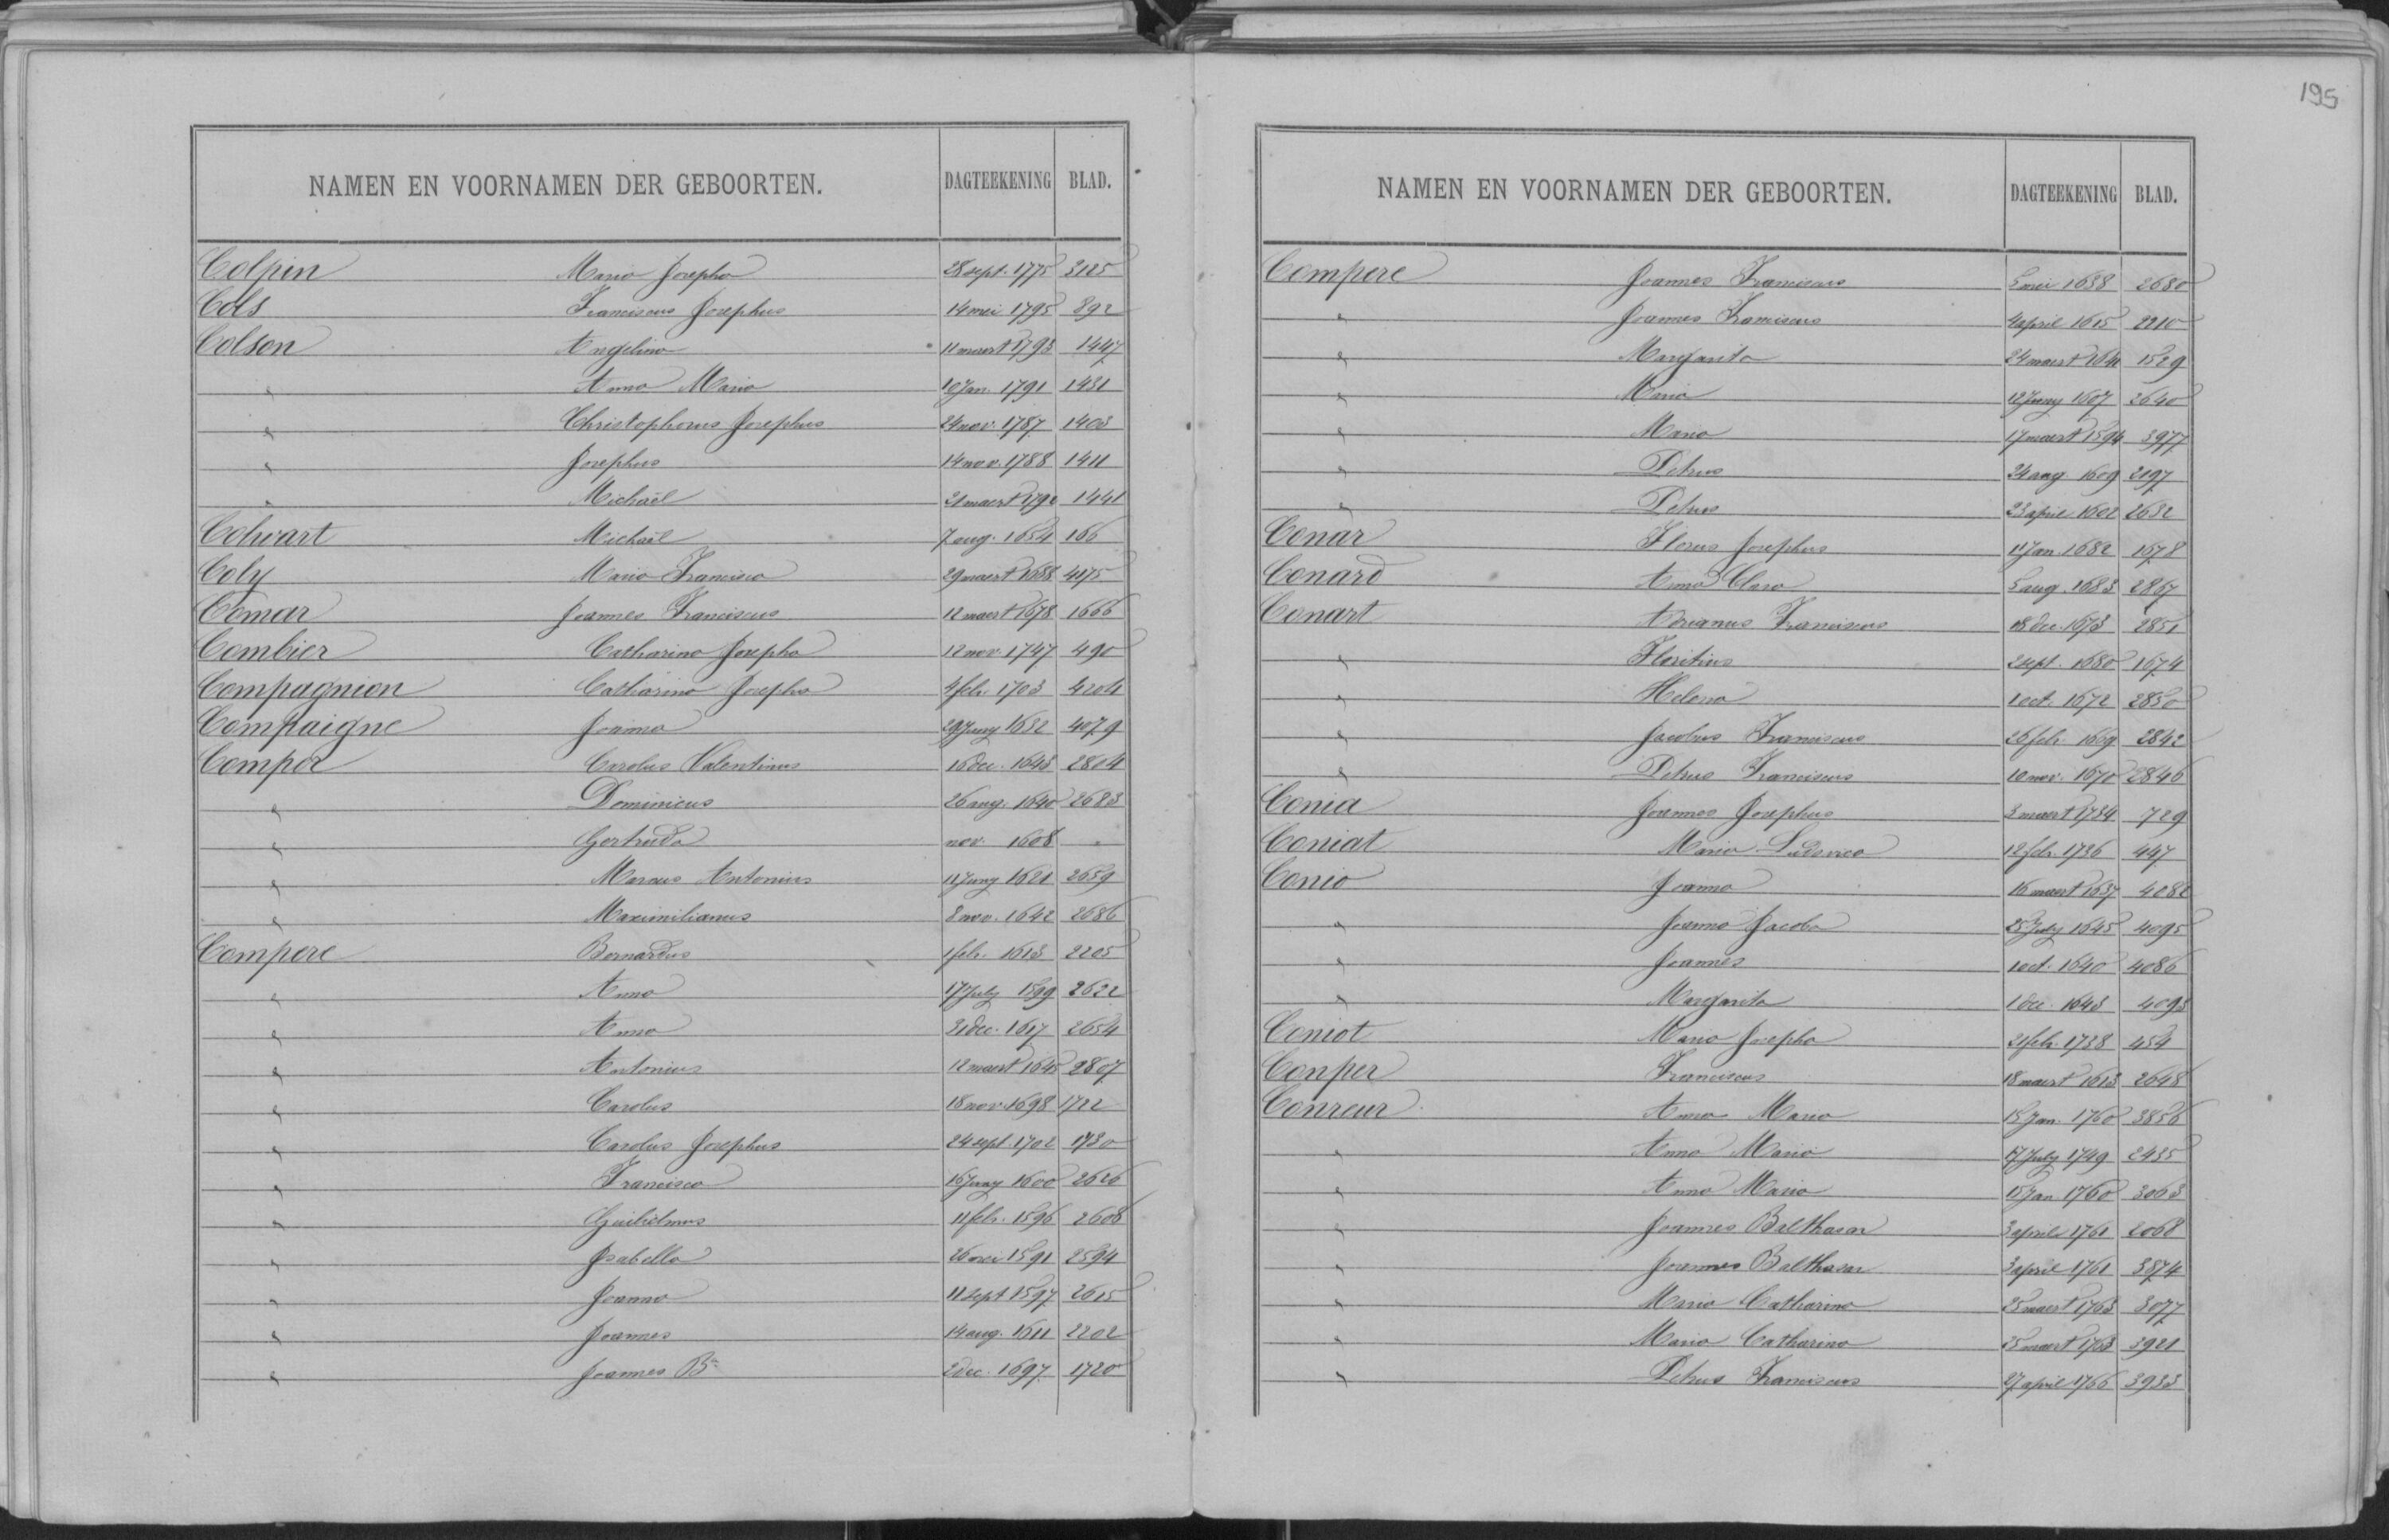 195
NAMEN EN VOORNAMEN DER GEBOORTEN. DAGTEEKENING BLAD.
Colpin Maria Josepha 28 sept. 1775 3125
Cols Franciscus Josephus 14 mei 1795 892
Colson Angelina 11 maert 1793 1447
" Anna Maria 10 Jan. 1791 1431
" Christophorus Josephus 24 nov. 1787 1403
" Josephus 14 nov. 1788 1411
" Michaël 31 maert 1792 1441
Colwart Michaël 7 aug. 1654 166
Coly Maria Francisca 29 maert 1668 4175
Comar Joannes Franciscus 12 maert 1678 1666
Combier Catharina Josepha 12 nov. 1747 490
Compagnion Catharina Josepha 4 feb. 1703 4204
Compaigne Joanna 29 Juny 1632 4079
Comper Carolus Valentinus 16 dec. 1643 2804
" Dominicus 26 aug. 1640 2683
" Gertruda nov. 1608 "
" Marcus Antonius 11 Juny 1621 2659
" Maximilianus 8 nov. 1642 2686
Compere Bernardus 1 feb. 1613 2205
" Anna 17 July 1599 2622
" Anna 31 dec. 1617 2654
" Antonius 12 maert 1645 2807
" Carolus 18 nov. 1698 1722
" Carolus Josephus 24 sept. 1702 1730
" Francisca 16 Juny 1600 2626
" Guilielmus 11 feb. 1596 2608
" Isabella 26 mei 1591 2594
" Joanna 11 sept 1597 2615
" Joannes 14 aug. 1611 2202
" Joannes Bta 2 dec. 1697 1720
NAMEN EN VOORNAMEN DER GEBOORTEN. DAGTEEKENING BLAD.
Compere Joannes Franciscus 5 mei 1638 2680
" Joannes Franciscus 4 april 1615 2210
" Margarita 24 maert 1641 1529
" Maria 12 Juny 1607 2640
" Maria 17 maert 1594 3977
" Petrus 24 aug. 1609 2197
" Petrus 23 april 1602 2632
Conar Florus Josephus 11 Jan. 1682 1678
Conard Anna Clara 5 aug. 1683 2867
Conart Adrianus Franciscus 18 dec. 1673 2851
" Floritius 2 sept. 1680 1674
" Helena 1 oct. 1672 2850
" Jacobus Franciscus 26 feb. 1669 2842
" Petrus Franciscus 10 nov. 1670 2846
Conia Joannes Josephus 3 maert 1734 729
Coniat Maria Ludovica 12 feb. 1736 447
Conio Joanna 16 maert 1637 4082
" Joanna Jacoba 25 July 1645 4095
" Joannes 1 oct. 1640 4086
" Margarita 1 dec. 1643 4093
Coniot Maria Josepha 21 feb. 1738 454
Conper Franciscus 18 maert 1613 2648
Conreur Anna Maria 15 Jan. 1760 3856
" Anna Maria 17 July 1749 2435
" Anna Maria 15 Jan 1760 3063
" Joannes Balthasar 3 april 1761 2068
" Joannes Balthasar 3 april 1761 3874
" Maria Catharina 25 maert 1763 3077
" Maria Catharina 25 maert 1763 3921
" Petrus Franciscus 27 april 1766 3933